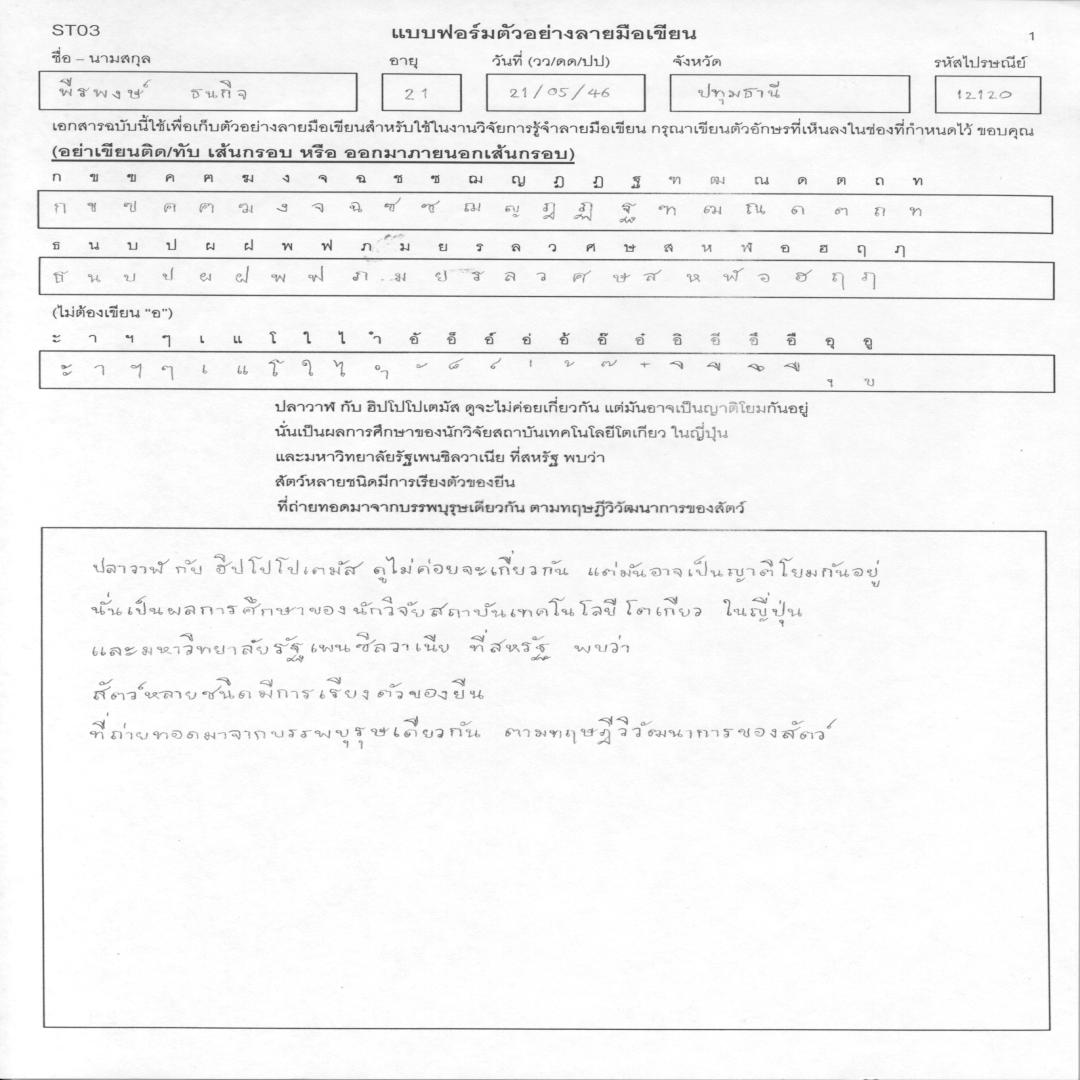 ST03
แบบฟอร์มตัวอย่างลายมือเขียน
1
ชื่อ – นามสกุล อายุ วันที่ (วว/ดด/ปป) จังหวัด รหัสไปรษณีย์
พีรพงษ์ ธนกิจ 21 21/05/46 ปทุมธานี 12120
เอกสารฉบับนี้ใช้เพื่อเก็บตัวอย่างลายมือเขียนสำหรับใช้ในงานวิจัยการรู้จำลายมือเขียน กรุณาเขียนตัวอักษรที่เห็นลงในช่องที่กำหนดไว้ ขอบคุณ
(อย่าเขียนติด/ทับ เส้นกรอบ หรือ ออกมาภายนอกเส้นกรอบ)
ก ข ฃ ค ฅ ฆ ง จ ฉ ช ซ ฌ ญ ฎ ฏ ฐ ฑ ฒ ณ ด ต ถ ท
ก ข ฃ ค ฅ ฆ ง จ ฉ ช ซ ฌ ญ ฎ ฏ ฐ ฑ ฒ ณ ด ต ถ ท
ธ น บ ป ผ ฝ พ ฟ ภ ม ย ร ล ว ศ ษ ส ห ฬ อ ฮ ฤ ฦ
ธ น บ ป ผ ฝ พ ฟ ภ ม ย ร ล ว ศ ษ ส ห ฬ อ ฮ ฤ ฦ
(ไม่ต้องเขียน "อ")
ะ า ฯ ๆ เ แ โ ใ ไ ำ อั อ็ อ์ อ่ อ้ อ๊ อ๋ อิ อี อึ อื อุ อู
ะ า ฯ ๆ เ แ โ ใ ไ ำ ั ็ ์ ่ ้ ๊ ๋ ิ ี ึ ื ุ ู
ปลาวาฬ กับ ฮิปโปโปเตมัส ดูจะไม่ค่อยเกี่ยวกัน แต่มันอาจเป็นญาติโยมกันอยู่
นั่นเป็นผลการศึกษาของนักวิจัยสถาบันเทคโนโลยีโตเกียว ในญี่ปุ่น
และมหาวิทยาลัยรัฐเพนซิลวาเนีย ที่สหรัฐ พบว่า
สัตว์หลายชนิดมีการเรียงตัวของยีน
ที่ถ่ายทอดมาจากบรรพบุรุษเดียวกัน ตามทฤษฎีวิวัฒนาการของสัตว์
ปลาวาฬ กับ ฮิปโปโปเตมัส ดูไม่ค่อยจะเกี่ยวกัน แต่มันอาจเป็นญาติโยมกันอยู่
นั่นเป็นผลการศึกษาของนักวิจัยสถาบันเทคโนโลยีโตเกียว ในญี่ปุ่น
และมหาวิทยาลัยรัฐเพนซิลวาเนีย ที่สหรัฐ พบว่า
สัตว์หลายชนิดมีการเรียงตัวของยีน
ที่ถ่ายทอดมาจากบรรพบุรุษเดียวกัน ตามทฤษฎีวิวัฒนาการของสัตว์